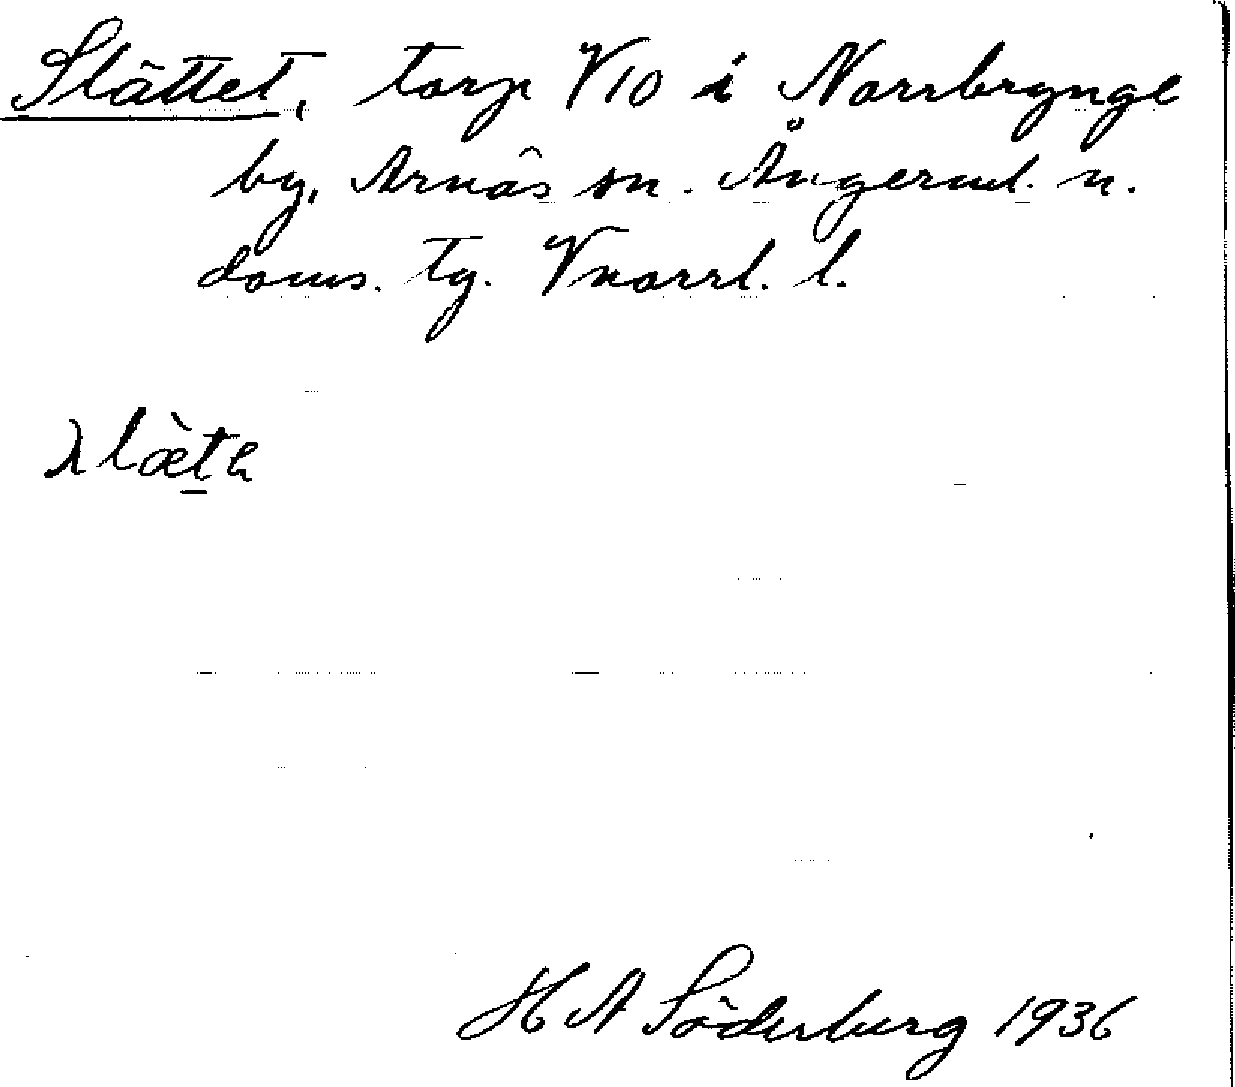 Slättet, torp V10 i Norrbrynge
by, Arnäs sn. Ångerml. n.
doms. tg. Vnorrl. l.
H A Söderburg 1936